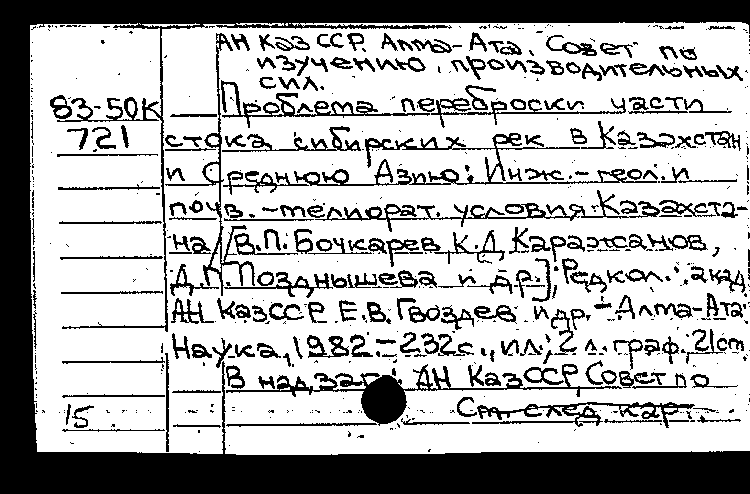 АН КазССР. Алма-Ата. Совет по
изучению производительных
сил.
83-50К Проблема переброски части
721 стока сибирских рек в Казахстан
и Среднюю Азию: Инж.-геол. и
почв.-мелиорат. условия Казахста-
на / [В.П. Бочкарев, К.Д. Каражанов,
Д.П. Позднышева и др.]; Редкол.: акад.
АН КазССР Е.В. Гвоздев и др. - Алма-Ата:
Наука, 1982. - 232с., ил.; 2 л. граф., 21cm
В надзаг.: АН КазССР, Совет по
15 См. след. карт.